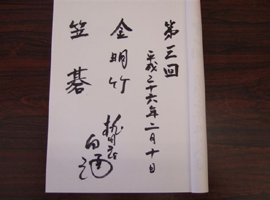 第三回
平成二十六年二月十日
金明竹
笠碁
白酒